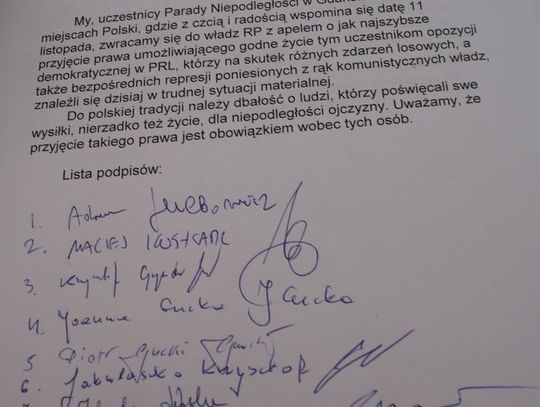 My, uczestnicy Parady Niepodległości w Gdańs
miejscach Polski, gdzie z czcią i radością wspomina się datę 11
listopada, zwracamy się do władz RP z apelem o jak najszybsze
przyjęcie prawa umożliwiającego godne życie tym uczestnikom opozycji
demokratycznej w PRL, którzy na skutek różnych zdarzeń losowych, a
także bezpośrednich represji poniesionych z rąk komunistycznych władz,
znaleźli się dzisiaj w trudnej sytuacji materialnej.
Do polskiej tradycji należy dbałość o ludzi, którzy poświęcali swe
wysiłki, nierzadko też życie, dla niepodległości ojczyzny. Uważamy, że
przyjęcie takiego prawa jest obowiązkiem wobec tych osób.
Lista podpisów:
1. Adam
2. MACIEJ
3. Krzysztof
4. Joanna Cucka J Cucka
5 Piotr
6. Krzysztof